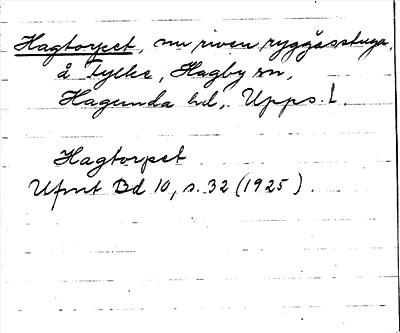 Hagtorpet, nu riven ryggåsstuga,
å Fylke, Hagby sn,
Hagunda hd, Upps. l.
Hagtorpet
Ufmt Bd 10, s. 32 (1925).